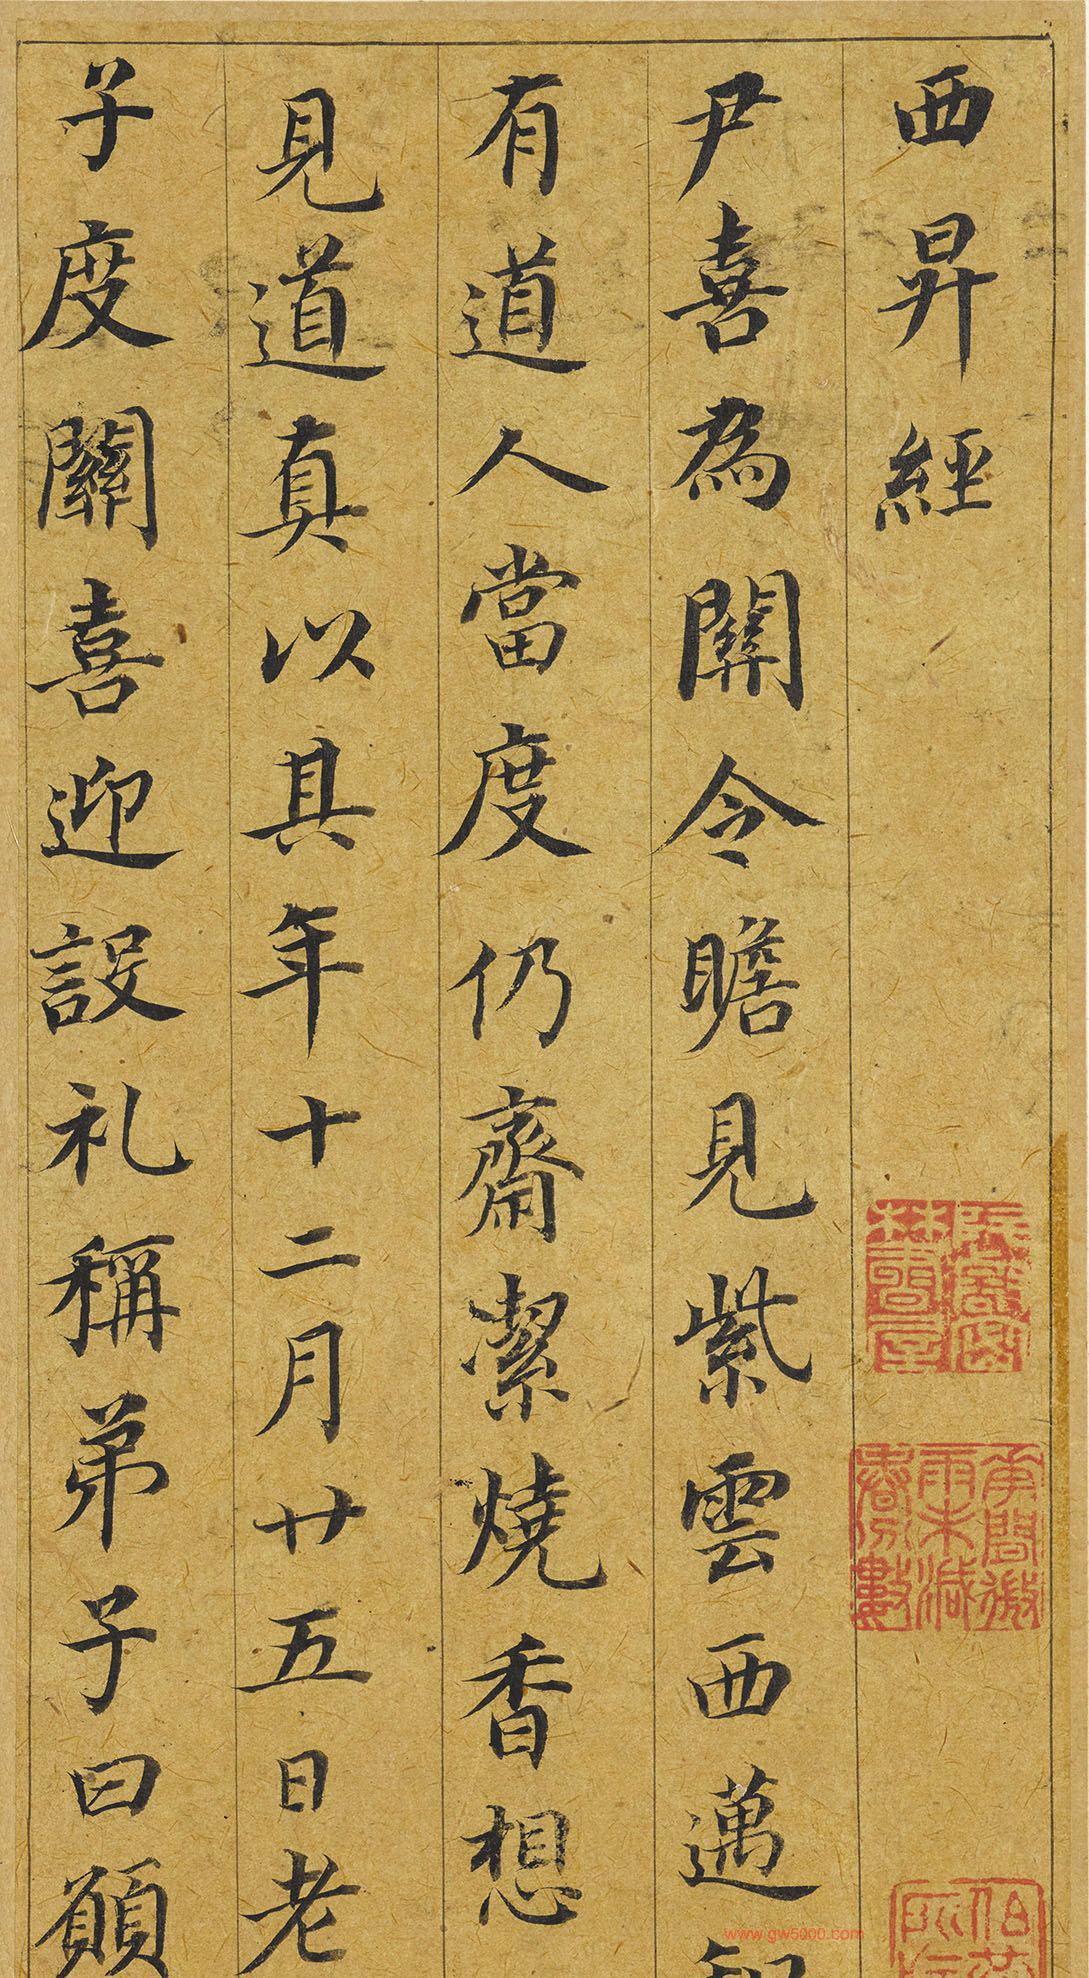 西昇經
尹喜為關令瞻見紫雲西邁知
有道人當度仍齋潔燒香想
見道真以其年十二月廿五日老
子度關喜迎設礼稱弟子曰願
www.gw5000.com